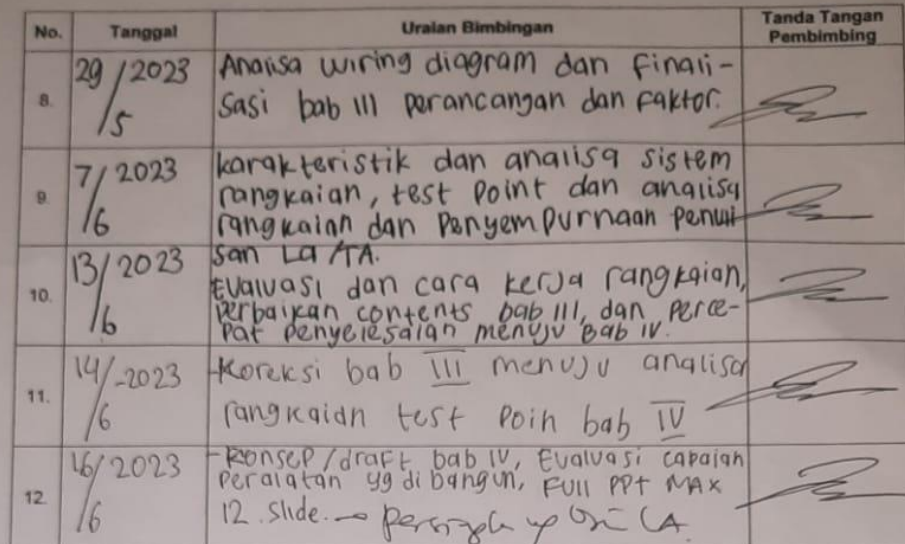 No. Tanggal Uraian Bimbingan Tanda Tangan
Pembimbing
8. 29/5 2023 Anaiisa wiring diagram dan Finali-
sasi bab III perancangan dan Faktor.
9. 7/6 2023 karakteristik dan analisa sistem
rangkaian, test Point dan analisa
rangkaian dan Penyempurnaan Penuli
san La/TA.
10. 13/6 2023 Evaluasi dan cara kerja rangkaian,
perbaikan contents bab III, dan Perce-
Pat Penyelesaian menuju Bab IV.
11. 14/6 -2023 -Koreksi bab III menuju analisa
rangkaian test Poin bab IV
12. 16/6 2023 -Konsep/draft bab IV, Evaluasi capaian
Peralatan yg dibangun, Full PPt MAX
12. Slide. →